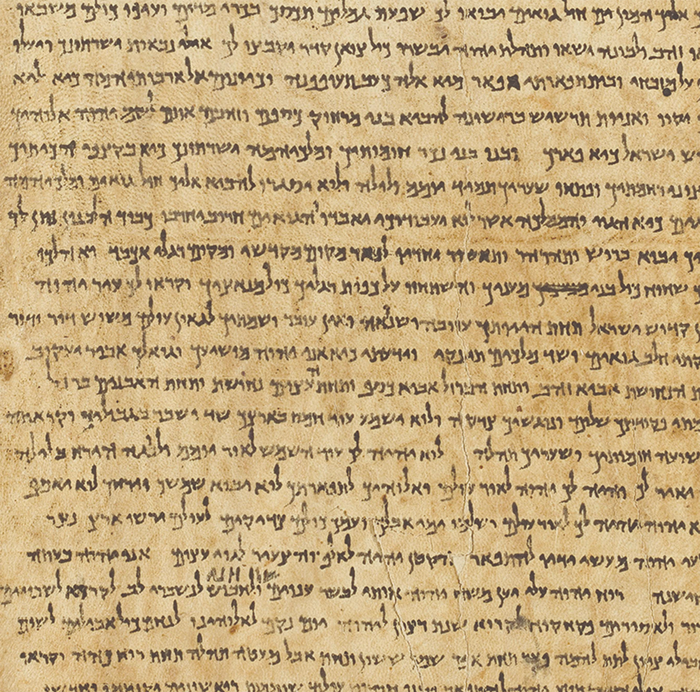 אליך המון ים חיל גואים יבואו לך שפעת גמלים תכסך בכרי מדים ועיפו כולם משבאו
זהב ולבונה ישאו ותהלת יהוה יבשרו כול צואן קדר יקבצו לך אילי נבאות ישרתונך ויעלו
על מזבחי ובית תפארתי אפאר מיא אלה כעב תעופפנה וכיונים אל ארבותיהמה כיא ליא
יקוו ואניות תרשיש ברישונה להביא בני מרחוק כספם וזהבם אתם לשם יהוה אלוהיך
ישראל כיא פארך ובנו בני נכר חומותיך ומלכיהמה ישרתונך כיא בקצפי הכיתיך
רחמתיך ופתחו שעריך תמיד יומם ולילה ולוא יסגרו להביא אליך חיל גואים ומלכיהמה
כיא הגוי והממלכה אשר לוא יעבודוך יאבדו והגואים חרוב יחרבו כבוד הלבנון נתן לך
יבוא ברוש ותהרהר ותאשור יחדיו לפאר מקום מקדשי ומקום רגלי אכבד והלכו
שחוח כול בני מעניך והשתחוו על כפות רגליך כול מנאציך וקראו לך עיר יהוה
קדוש ישראל תחת היותך עזובה ושנאה ואין עובר ושמתיך לגאון עולם משוש דור ודור
חלב גואים ושד מלכים תינקי וידעתי כיא אני יהוה מושיעך וגואלך אביר יעקוב
הנחושת אביא זהב ותחת הברזל אביא כסף ותחת העצים נחושת ותחת האבנים ברזל
פקודתך שלום ונוגשיך צדקה ולוא ישמע עוד חמס בארצך שד ושבר בגבוליך וקראתה
ישועה חומותיך ושעריך תהלה לוא יהיה לך עוד השמש לאור יומם ולנגה הירח בלילה
יאיר לך והיה לך יהוה לאור עולם ואלוהיך לתפארתך לוא יבוא שמשך וירחך לוא יאסף
יהוה יהיה לך לאור עולם ושלמו ימי אבלך ועמך כולם צדיקים לעולם ירשו ארץ נצר
יהוה מעשי ידיו להתפאר הקטן יהיה לאלף והצעיר לגוי עצום אני יהוה בעתה
רוח יהוה עלי יען משח יהוה אותי לבשר ענוים ולחבוש לנשברי לב לקרוא לשבויים
ולאסורים פקחקוח לקרוא שנת רצון ליהוה יום נקם לאלוהינו לנחם כול אבלים לשום
ציון לתת להמה פאר תחת אפר שמן ששון תחת אבל מעטה תהלה תחת רוח כהה וקראו